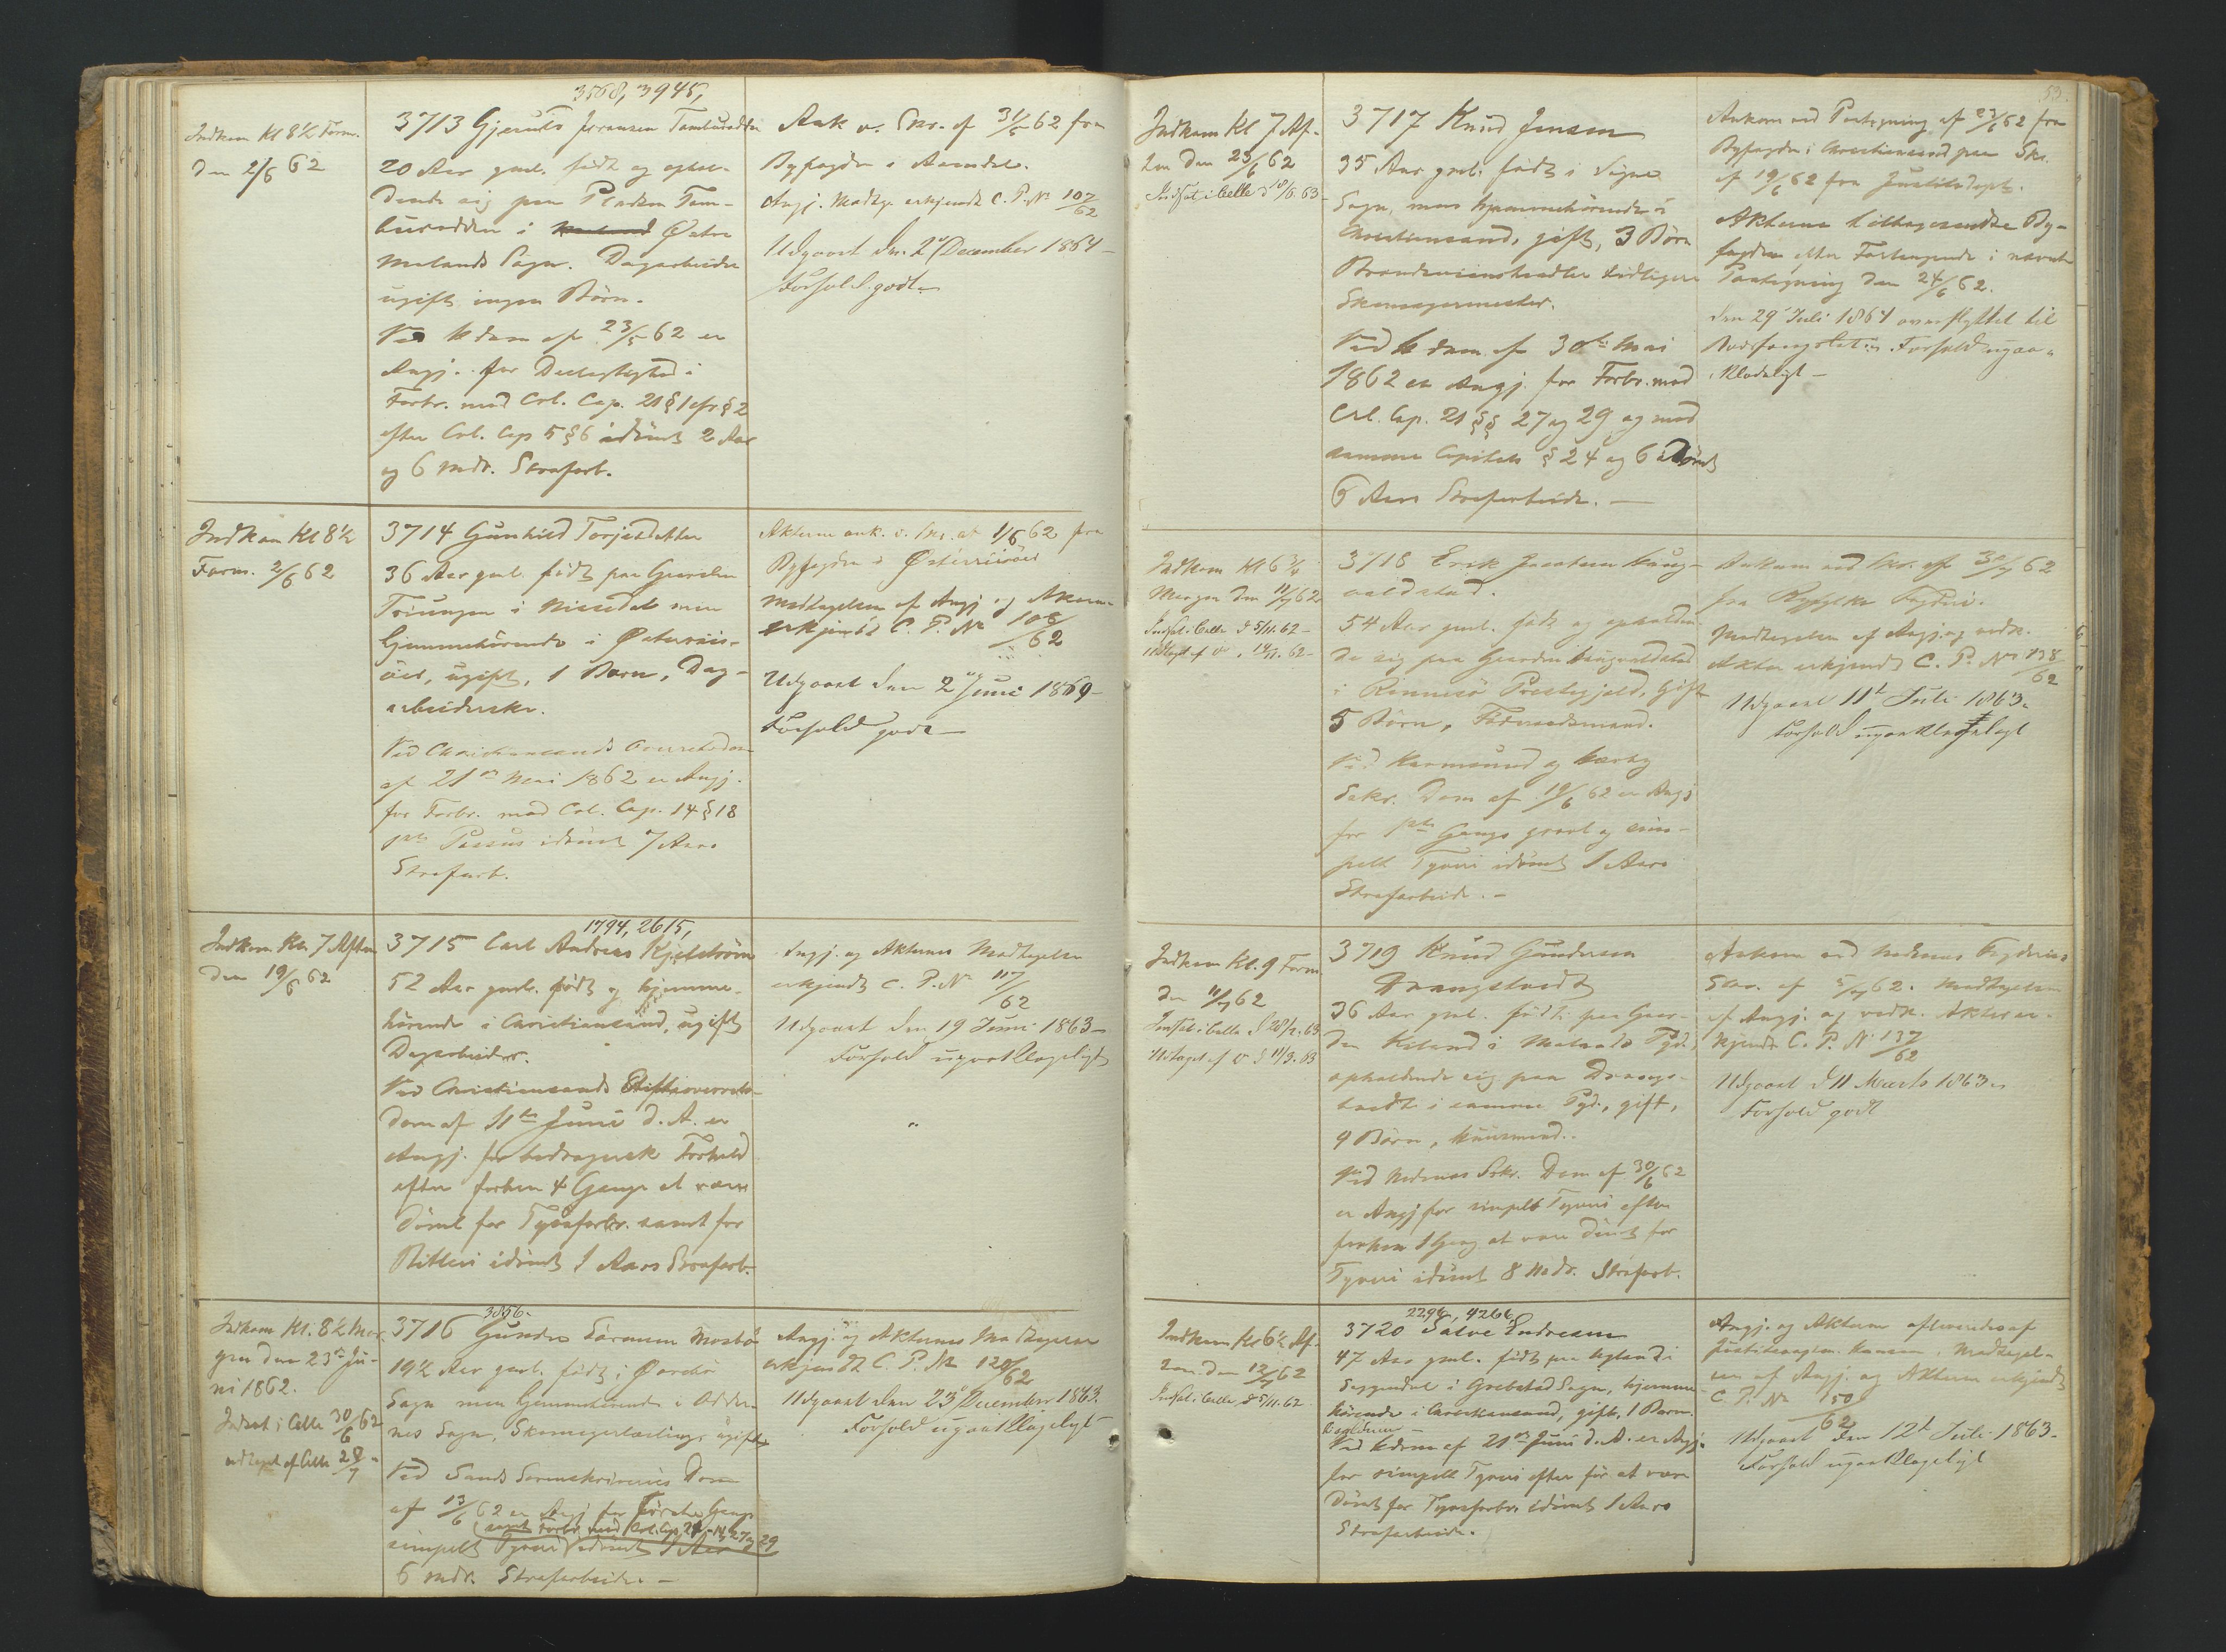 3568, 3945,
Indkom Kl 8½ Form.
den 2/6 62
3713 Gjeruls Jørensen Tamburodden
20 Aar gml. født og ophol-
dende sig paa Pladsen Tam-
burodden i Østre
Molands Sogn. Dagarbeider
ugift ingen Børn.
Ved Hdom af 23/5 62 er
Angj. for Deelagtighed i
Forbr. mod Crl. Cap. 21 § 1 cfr § 2
efter Crl. Cap 5 § 6 idømt 2 Aar
og 6 Mdr. Strafarb.
Ank v. Skr. af 31/5 62 fra
Byfogden i Arendal.
Angj. Modtg. erkjendt C. P. No 107/62
Udgaaet den 2d December 1864 –
Forhold godt –
Indkom Kl 8½
Form. 2/6 62
3714 Gunhild Torjesdatter
36 Aar gml. født paa Gaarden
i Nissedal men
hjemmehørende i Østerriis-
øer, ugift, 1 Barn, Dag-
arbeiderske.
Ved Christiansands Overretsdom
af 21de Mai 1862 er Angj.
for Forbr. mod Crl. Cap. 14 § 18
1ste Passus idømt 7 Aars
Strafarb.
Akterne ank. v. Skr. af 1/6 62 fra
Byfogden i Østerriisøer
Modtagelsen af Angj. og Akterne
erkjendt C. P. No 108/62
Udgaaet den 2den Juni 1869 –
Forhold godt –
1794, 2615,
Indkom Kl. 7 Aften
den 19/6 62
3715 Carl Andreas Kjelstrøm
52 Aar gml. født og hjemme-
hørende i Christiansand, ugift
Dagarbeider.
Ved Christiansands Stiftsoverrets-
dom af 11te Juni d. A. er
Angj. for bedragersk Forhold
efter forhen 4 Gange at være
dømt for Tyvsforbr. samt for
Betleri idømt 1 Aars Strafarb.
Angj. og Akternes Modtagelse
erkjendt C. P. No 117/62
Udgaaet den 19 Juni 1863 –
Forhold ugaatklageligt
3856.
Indkom Kl. 8½ Mor-
gen den 23de Ju-
ni 1862.
Indsat i Celle 30/6 62
udtaget af Celle 28/7 –
3716 Gunder Sørensen Mosbø
19½ Aar gml. født i Øvrebø
Sogn men hjemmehørende i Odder-
nes Sogn, Skomagerlærling, ugift
Ved Sands Sorenskriveries Dom
af 13/6 62 er Angj. for første Gang
samt Forbr. mod Crl. Cap. 21 27 og 29
simpelt Tyveri idømt 1 Aar
6 Mdr. Strafarbeide –
Angj. og Akternes Modtagelse
erkjendt C. P. No 120/62
Udgaaet den 23d December 1863.
Forhold ugaatklageligt
52.
Indkom Kl 7 Af-
ten den 23/6 62
Indsat i Celle d 18/6. 63 –
3717 Knud Jensen
35 Aar gml. født i Søgne
Sogn, men hjemmehørende i
Christiansand, gift, 3 Børn
Brændeviinshandler tidligere
Skomagermester.
Ved Hdom af 30te Mai
1862 er Angj. for Forbr. mod
Crl. Cap. 21 §§ 27 og 29 og mod
samme Capitels § 24 og 6 idømt
6 Aars Strafarbeide. –
Ankom ved Paategning af 23/6 62 fra
Byfogden i Christiansand paa Skr.
af 19/6 62 fra Justitsdept.
Akterne tilbagesendte By-
fogden efter Forlangende i nævnte
Paategning den 24/6 62.
den 29 Juli 1864 overflyttet til
Bodsfængslet. Forhold ugaa-
klageligt –
Indkom Kl 6¾
Morgen den 11/7 62
Indsat i Celle d 5/11. 62 –
Udtagt af do, 14/11. 62 –
3718 Erik Jacobsen Haug-
valdstad.
54 Aar gml. født og opholden-
de sig paa Gaarden Haugvaldstad
i Rennesø Præstegjeld, Gift
5 Børn, Føderaadsmand.
Ved Karmsund og Hesby
Sskr. Dom af 19/6 62 er Angj
for 1ste Gangs grovt og sim-
pelt Tyveri idømt 1 Aars
Strafarbeide. –
Ankom ved Skr. af 3/7 62
fra Ryfylke Fogderi.
Modtagelsen af Angj. og vedk.
Akter erkjendt C. P. No 138/62
Udgaaet 11t Juli 1863.
Forhold ugaatklageligt
Indkom Kl. 9 Form
den 11/7 62
Indsat i Celle d 28/2. 63
Udtaget af do d 11/3. 63
3719 Knud Gundersen
Drangstvedt
36 Aar gml. født paa Gaar-
den i Molands Pgd.
opholdende sig paa Drangs-
tvedt i samme Pgd., gift,
4 Børn, Huusmand.
Ved Nedenes Sskr. Dom af 30/6 62
er Angj for simpelt Tyveri efter
forhen 1 Gang at være dømt for
Tyveri idømt 8 Mdr. Strafarb.
Ankom ved Nedenæs Fogderies
Skr. af 5/7 62. Modtagelsen
af Angj. og vedk. Akter er-
kjendt C. P. N 137/62
Udgaaet d 11 Marts 1863.
Forhold godt
2296, 4266
Indkom Kl 6½ Af-
ten den 12/7 62
Indsat i Celle d 5/11. 62
3720 Salve Endresen
47 Aar gml. født paa i
i Sogn, hjemme-
hørende i Christiansand, gift, 1 Barn.
Ved Hdom af 21de Juni d. A. er Angj.
for simpelt Tyveri efter før at være
dømt for Tyvsforbr. idømt 1 Aars
Strafarbeide.
Angj. og Akterne afleveredes af
Modtagel-
sen af Angj. og Akterne erkjendt
C. P. No 150/62
Udgaaet den 12t Juli 1863 –
Forhold ugaatklageligt